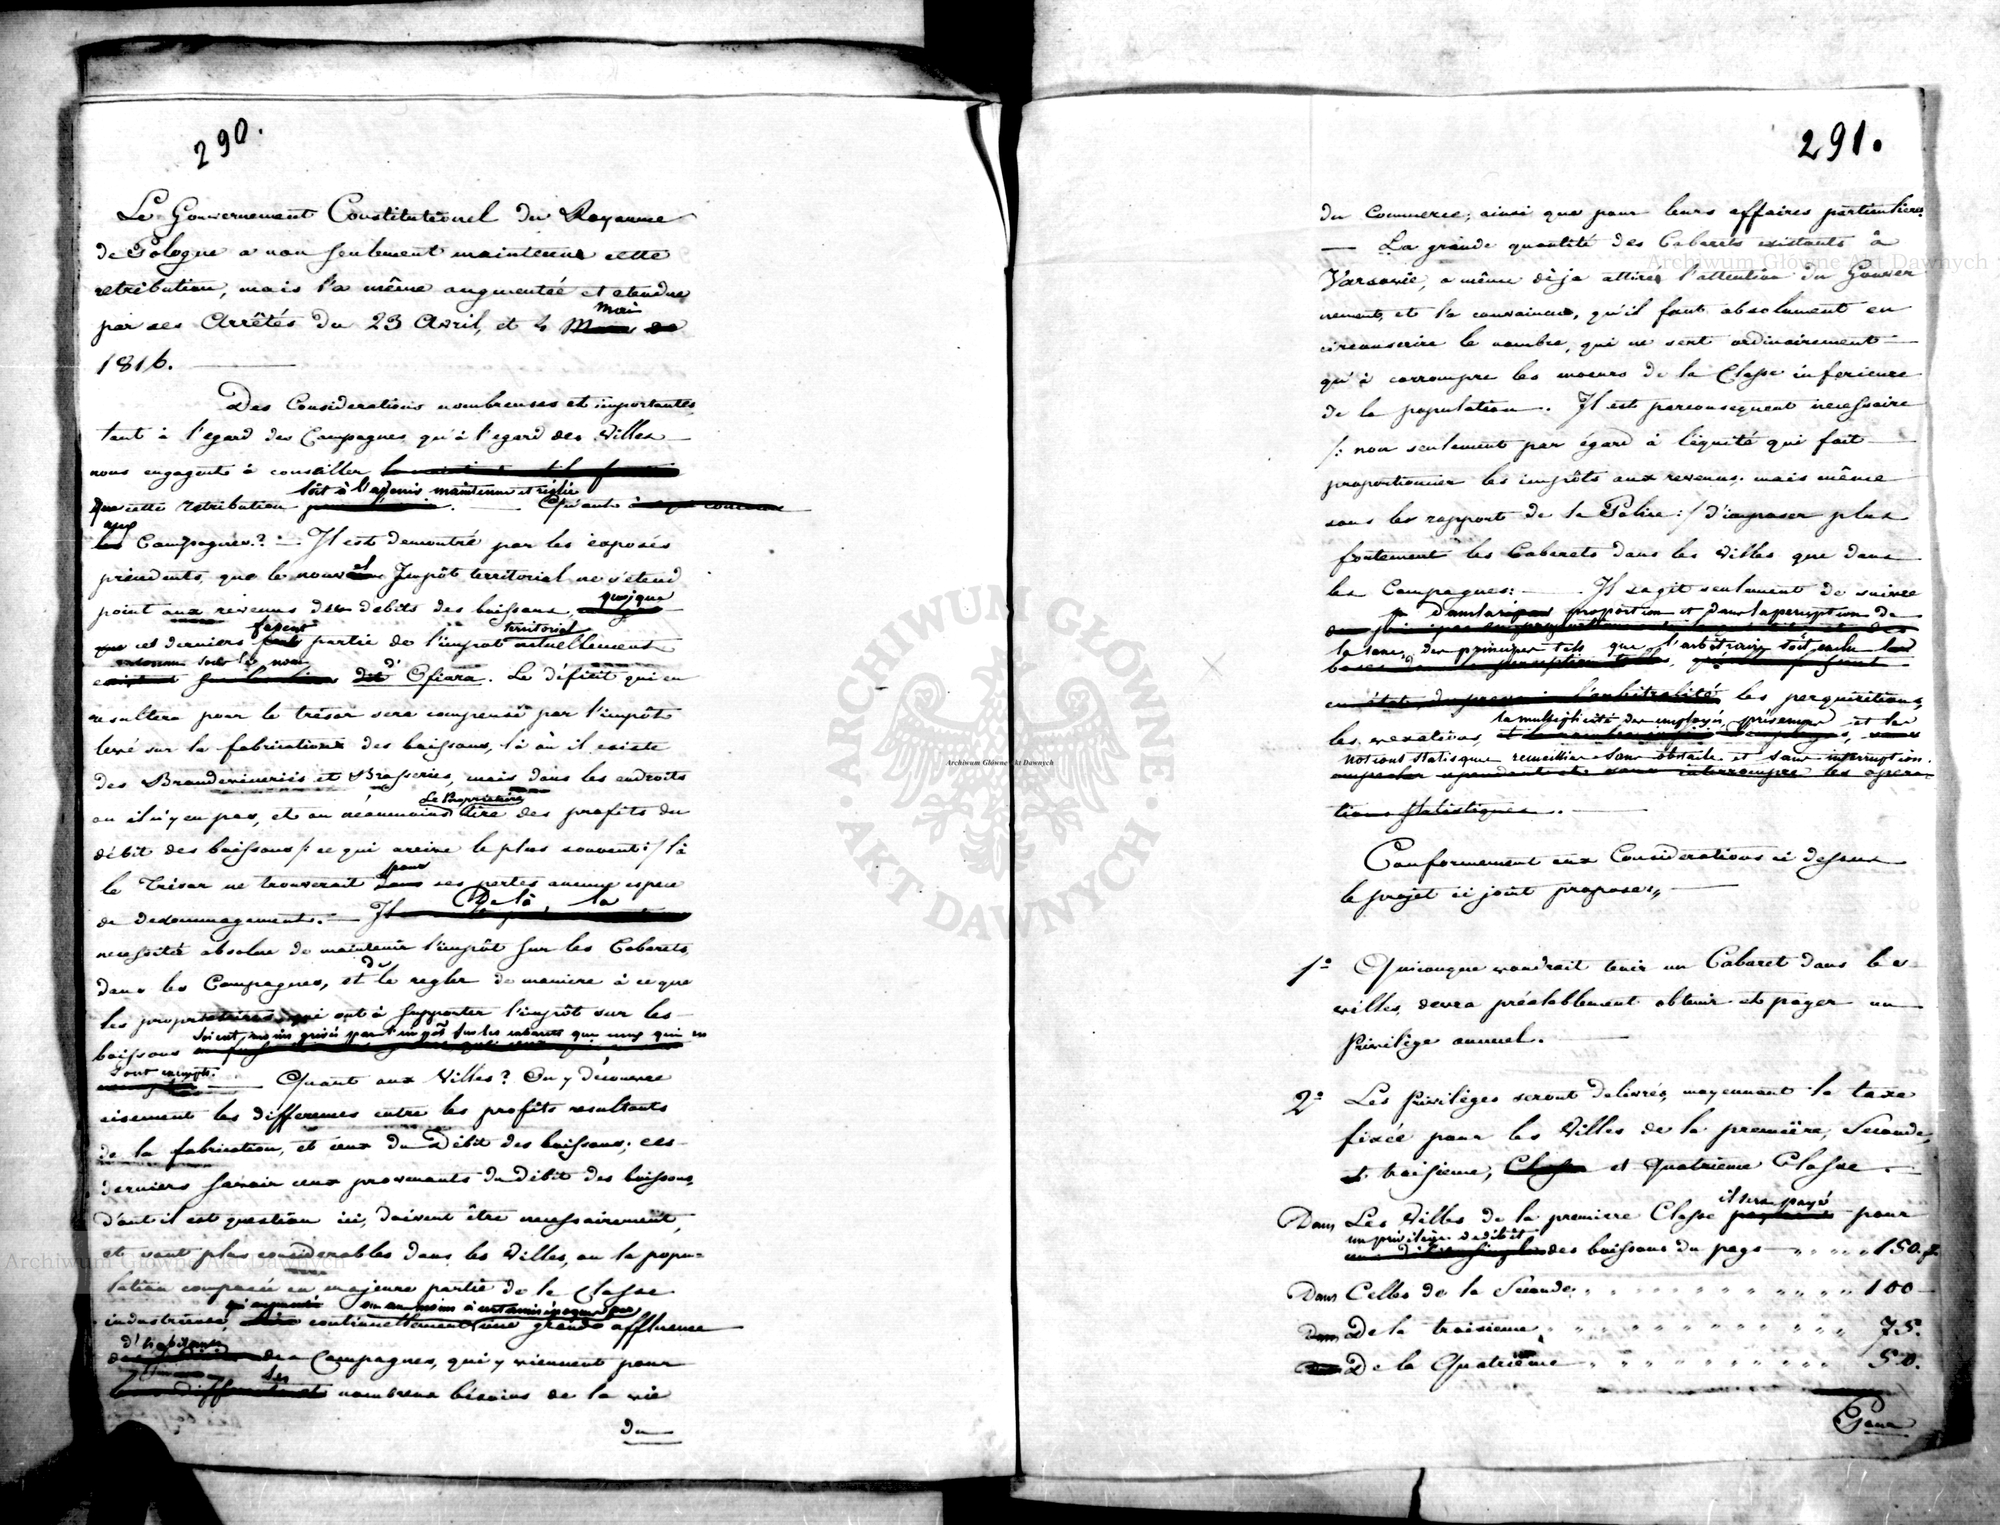 290.
Le Gouvernement Constitutionel du Royaume
de Pologne a non seulement maintenue cette
retribution, mais l'a même augmentée et etendue
par ses Arrêtés du 23 Avril, et 4 Mai
1816.
Des Considerations nombreuses et importantes
tant à l'egard des Campagnes qu'à l'egard des Villes
nous engagent à conseiller
soit à l'avenir maintenue et réglée
Que cette retribution Quant à
aux
les Campagnes? — Il est demontré par les exposés
précedents, que le nouvel Impôt territorial ne s'étend
point aux revenus des debits des boissons, quoique
que ces derniers fassent partie de l'impôt territorial actuellement
sous le nom
dit d'Ofiara. Le déficit qui en
resultera pour le trésor sera compensé par l'impôt
levé sur la fabrication des boissons, là où il existe
des Brandevineries et Brasseries, mais dans les endroits
Le Propriétaire
ou il n'y en pas, et ou néanmoins tire des profits du
débit des boissons /: ce qui arrive le plus souvent :/ là
pour
le Trésor ne trouverait dans ses pertes aucune espece
de dedommagement. — Il De là, la
necessité absolue de maintenir l'impôt sur les Cabarets
dans les Campagnes, et de le regler de maniere à ce que
les proprietaires qui ont à supporter l'impôt sur les
soient moins grévés par l'impôt sur les cabarets que ceux qui en
boissons
sont exempts.
Quant aux Villes? On y découvre
aisement les differences entre les profits resultants
de la fabrication, et ceux du Débit des boissons; ces
derniers savoir ceux provenants du débit des boissons,
dont il est question ici, doivent être necessairement,
et sont plus considerables dans les Villes, ou la popu-
lation composée en majeure partie de la Classe
qui augmente ou au moins à certaines époques
industrieuse, continuellement une grande affluence
d'habitans
des Campagnes, qui y viennent pour
les
nombreux bésoins de la vie
du
291.
du Commerce, ainsi que pour leurs affaires particulieres.
— La grande quantité des Cabarets existants à
Varsovie, a même déja attiré l'attention du Gouver
nement, et l'a convaincu, qu'il faut absolument en
circonscrire le nombre, qui ne sert ordinairement
qu'à corrompre les moeurs de la Classe inferieure
de la population. Il est parconsequent necessaire
/: non seulement par égard à l'équité qui fait
proportionner les impôts aux revenus, mais même
sous le rapport de la Police :/ d'imposer plus
fortement les Cabarets dans les Villes que dans
les Campagnes: — Il s'agit seulement de suivre
dans la proportion et dans la perception de
la taxe, des principes tels que l'arbitraire soit exclu
les perquisitions,
la multiplicité des employés, prévenue et les
les vexations,
notions statisque recueillies sans obstacle et sans interruption.
empecher cependant et sans interrompre les opera-
tions statistiques.
Conformement aux Considerations ci dessus
le projet ci joint propose,,
1º Quiconque voudrait tenir un Cabaret dans les
villes, devra préalablement obtenir et payer un
Privilège annuel.
2º Les Privilèges seront delivrés, moyennant la taxe
fixée pour les Villes de la première, Seconde,
et troisieme, Classe et Quatrième Classe.
il sera payé
Dans Les Villes de la premiere Classe pour
un privilège de débit
des boissons du pays " " " " 150. f.
Dans Celles de la Seconde " " " " 100 —
Dans De la troisieme " " " " 75.
De la Quatrième " " " " 50.
Pour
ARCHIWUM GŁÓWNE
AKT DAWNYCH
Archiwum Główne Akt Dawnych
Archiwum Główne Akt Dawnych
Archiwum Główne Akt Dawnych